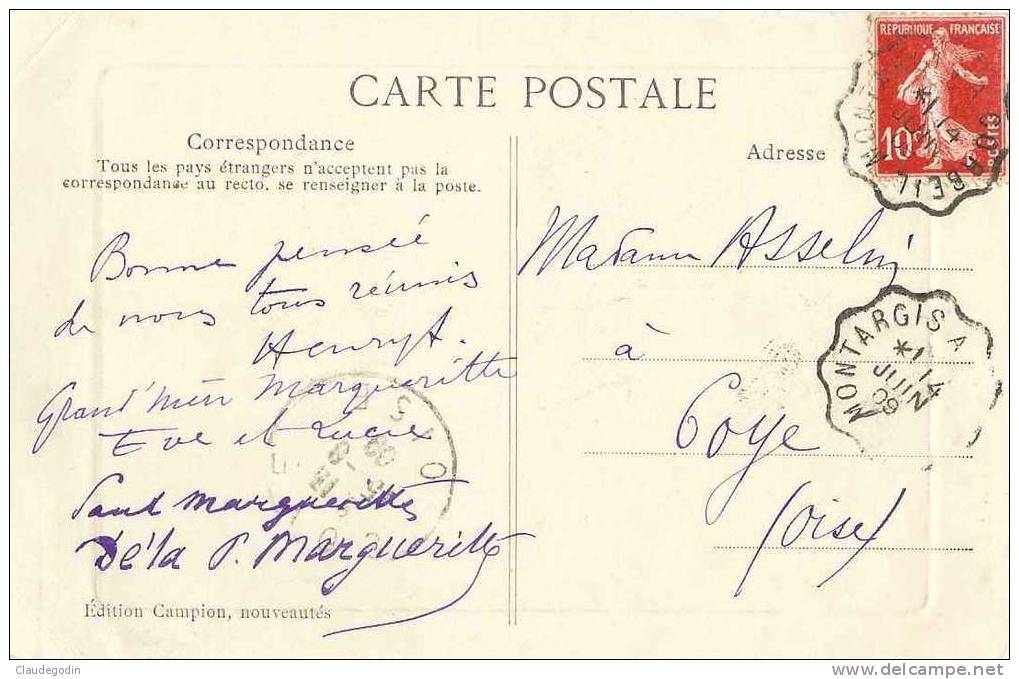 CARTE POSTALE
Correspondance
Tous les pays étrangers n'acceptent pas la
correspondance au recto, se renseigner à la poste.
Bonne pensée
de nous tous réunis
Henry
Grand'mère Margueritte
Eve et Lucie
Paul Margueritte
P. Margueritte
Édition Campion, nouveautés
Adresse
RÉPUBLIQUE FRANÇAISE
10c
POSTES
Madame Asselin
à
Coye
(Oise)
MONTARGIS A
*1
14
JUIN
09
Claudegodin
www.delcampe.net